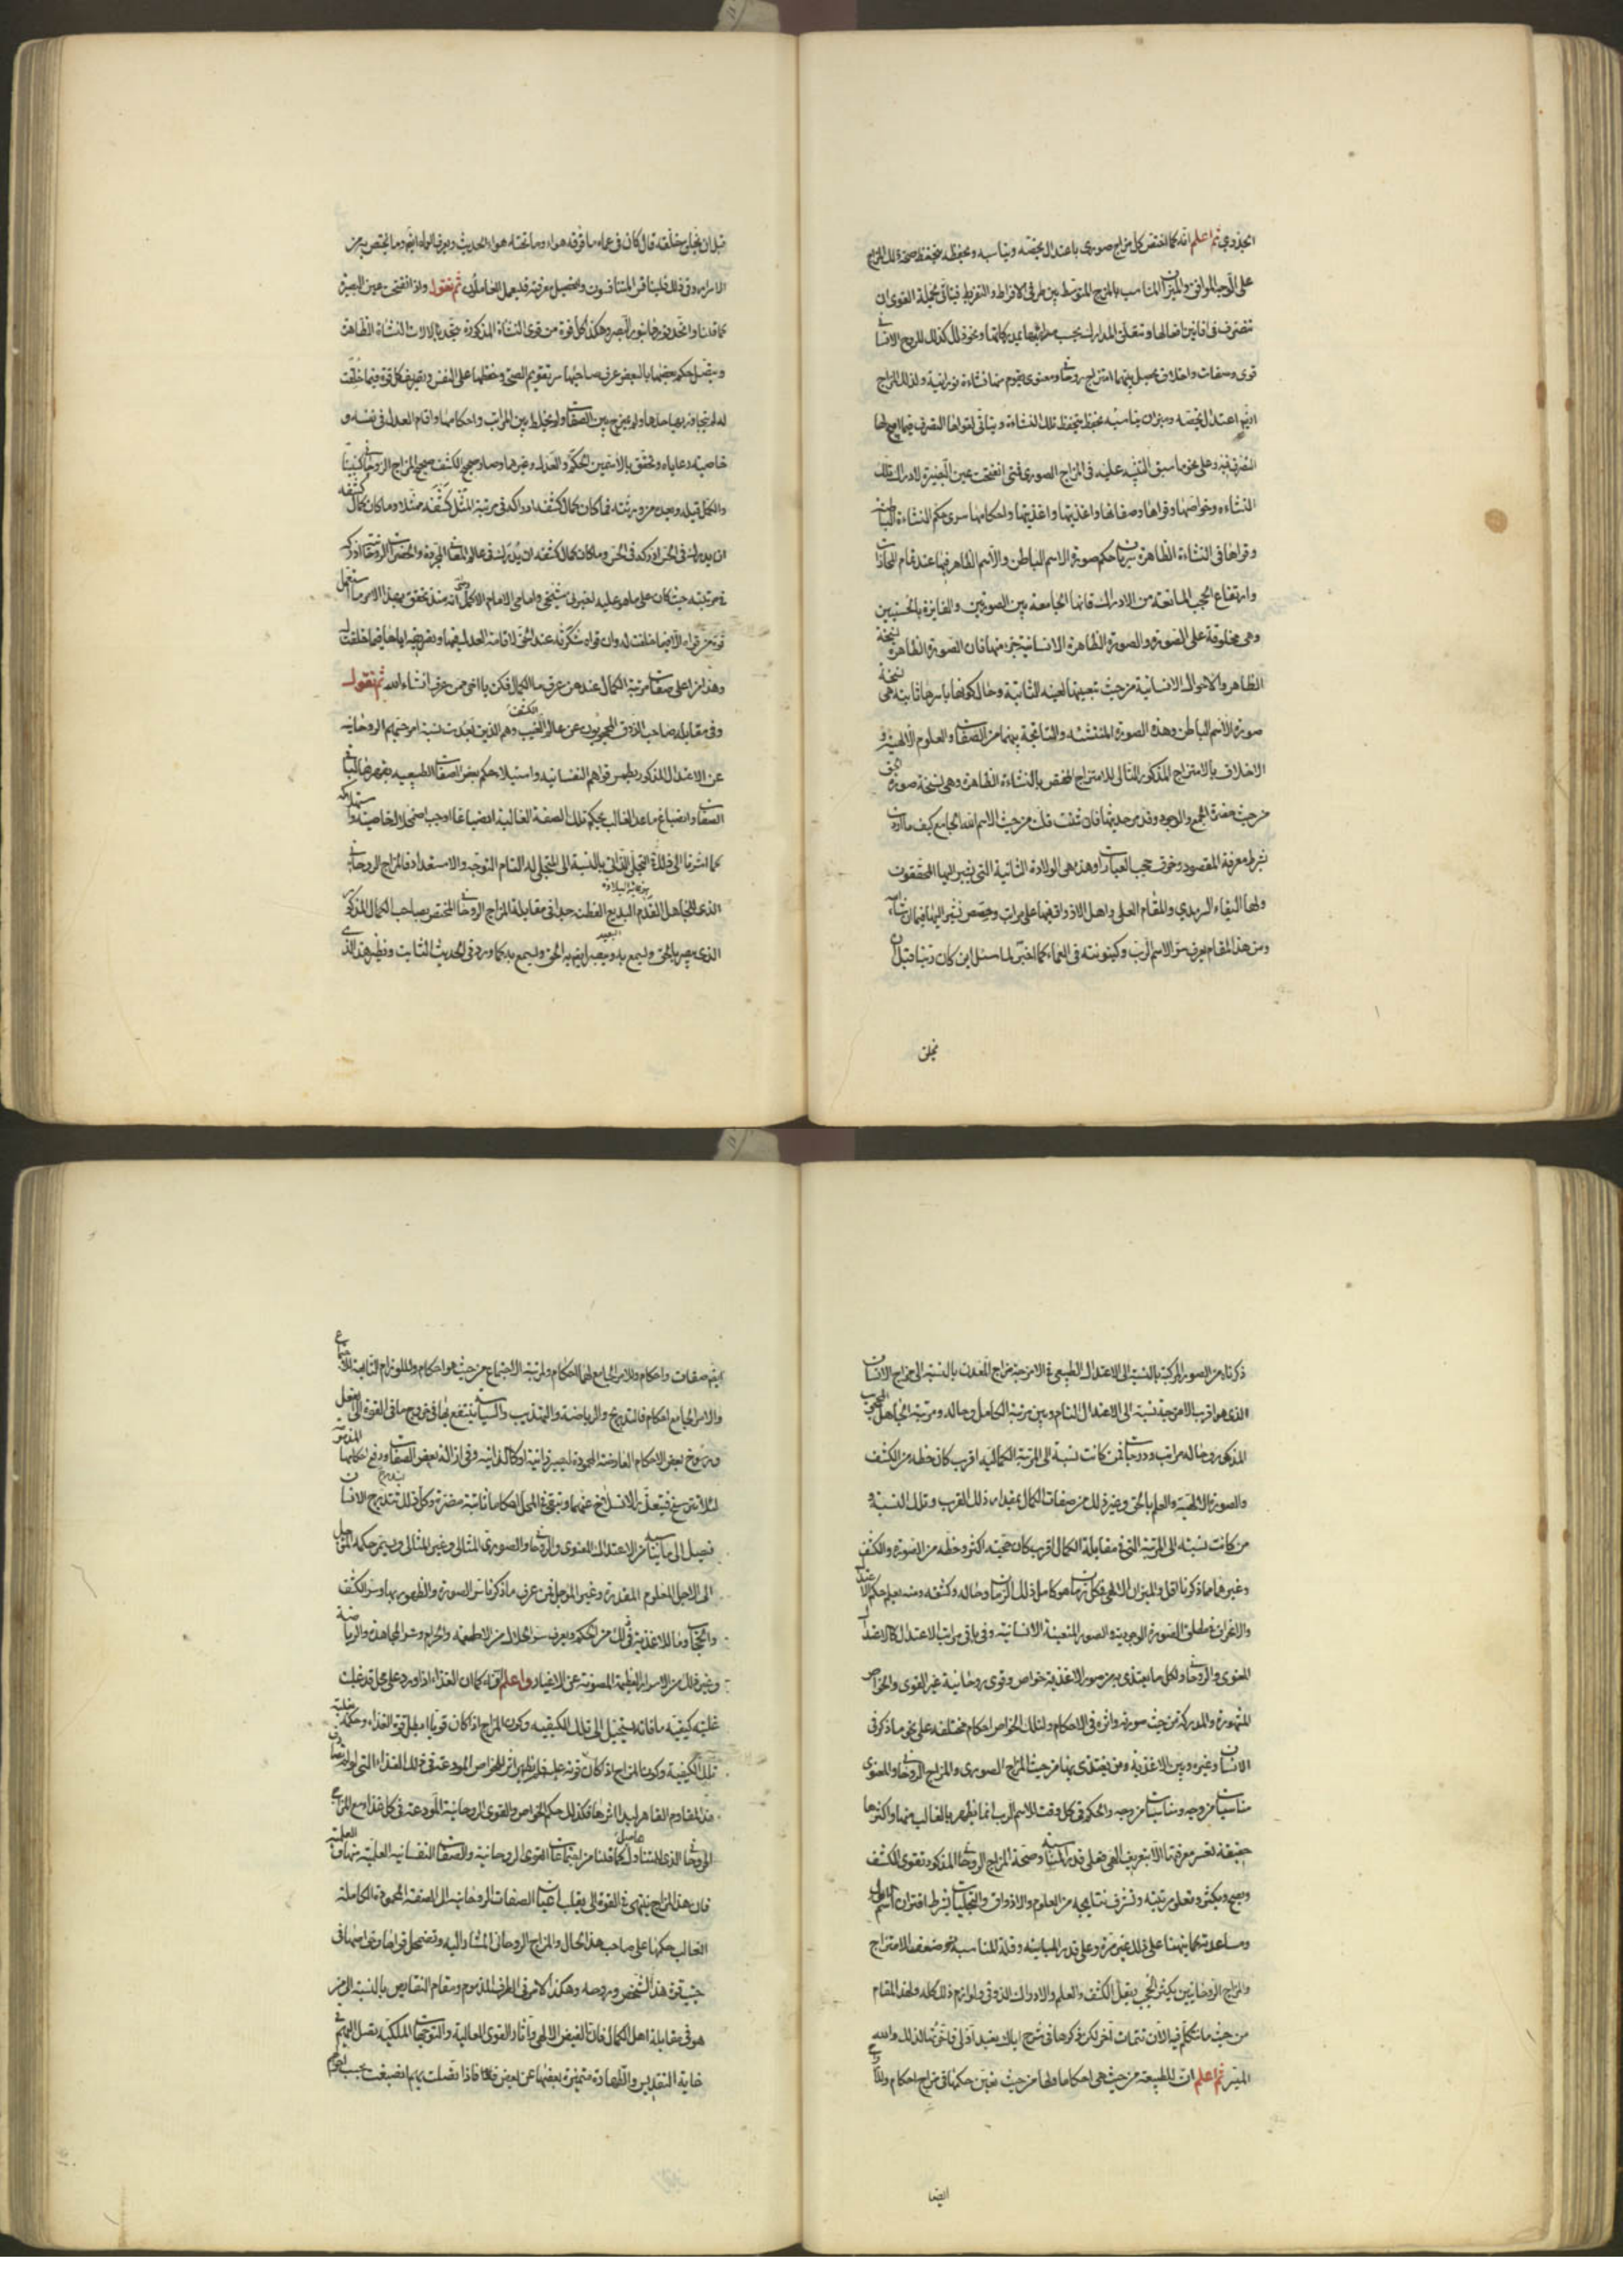 الجذري ثم اعلم انه كما اختص كل مزاج صوري باعتدال يخصه ويناسبه ويحفظه يتحفظ صحة ذلك المزاج
على الوجه الموافق والميزان المناسب بالمزج المتوسط بين طرفي الافراط والتفريط فيتأتى لجملة القوى ان
تتصرف في افانين افعالها وتتعلق المدارك بحسب مراتبها بمدركاتها ونحو ذلك كذلك للروح الانساني
قوى وصفات واخلاق يحصل بينها امتزاج روحاني ومعنوي يقوم منها نشاءة نورانية ولذلك المزاج
ايضا اعتدال يخصه وميزان يناسبه يحفظ بحفظه تلك النشاءة ويتأتى لقواها التصرف فيما ابيح لها
التصرف فيه وعلى نحو ما سبق التنبيه عليه في المزاج الصوري فمتى انفتحت عين البصيرة لادراك تلك
النشاءة وخواصها وقواها وصفاتها واغذيتها واحكامها سرى حكم النشاءة الباطنة
وقواها في النشاءة الظاهرة سريان حكم صورة الاسم الباطن والاسم الظاهر فيها عند تمام المحاذات
وارتفاع الحجب المانعة من الادراك فانها الجامعة بين الصورتين والفايزة بالحسنيين
وهي مخلوقة على الصورة والصورة الظاهرة الانسانية جزء منها فان الصورة الظاهرة نسخة
الظاهر والاحوال الانسانية من حيث تبعيتها لعينه الثابتة وحال كونها باسرها ثابته هي نسخة
صورة الاسم الباطن وهذه الصورة المنتشئة والناتجة بينهما من الصفات والعلوم الالهية و
الاخلاق بالامتزاج المذكور التالي للامتزاج المختص بالنشاءة الظاهرة وهي نسخة صورة الحق
من حيث حضرة الجمع والوجود وقد مر حديثها فان شئت قلت من حيث الاسم الله الجامع كيف ما اردت
بشرط معرفة المقصود وخرق حجب العبارات وهذه هي الولادة الثانية التي يشير اليها المحققون
ولها البقاء السرمدي والمقام العلى واهل الاذواق فيها على مراتب وحصص نشير اليها فيما بعد ان شاء الله
ومن هذا المقام يعرف سر الاسم الرب وكينونته في العماء كما اخبر لما سئل اين كان ربنا قبل ان
يخلق
قبل ان يخلق خلقه قال كان في عماء ما فوقه هواء وما تحته هواء الحديث ويعرف المراد ايضا وما يختص به من
الاسرار وفي ذلك فليتنافس المتنافسون ولتحصيل معرفته فليعمل العاملون ثم نقول واذا انفتحت عين البصيرة
كما قلنا واتحد نورها بنور البصر وهكذا كل قوة من قوى النشاة المذكورة تتحد بالالات النشاة الظاهرة
ويتصل حكم بعضها بالبعض عرف صاحبها سر تقويم الصحة وحفظها على النفس وتصريف كل قوة فيما خلقت
له لم يتجاوز بها حدها ولم يمزج بين الصفات ولم يخلط بين المراتب واحكامها واقام العدل في نفسه و
خاصيته ورعاياه وتحقق بالاسمين الحكم والعدل وغيرهما وصار صحيح الكشف صحيح المزاج الروحاني كنبينا
والكمل قبله وبعده من ورثته فما كان كمال كشفه ادراكه في مرتبة المثل كشفه ممثلا وما كان كمال كشفه
ان يدرك في الحس ادركه في الحس وما كان كمال كشفه ان يدرك في عالم المعاني المجردة والحضرات الروحانية ادركه
في مرتبته حيث كان على ما هو عليه اخبرني شيخي وامامي الامام الاكمل رضي انه منذ تحقق بهذا الامر ما استعمل
قوة من قواه الا فيما خلقت له وان قواه شكرته عند الحق لاقامة العدل فيها وتصريفه اياها فيما خلقت له
وهذا من اعلى صفات مرتبة الكمال عند من عرف ما الكمال فكن يا اخي ممن عرف انشاء الله ثم نقول
وفي مقابلة صاحب الذوق والكشف المحجوبون عن عالم الغيب وهم الذين بعدت نسبة امزجتهم الروحانية
عن الاعتدال المذكور بطمس قواهم النفسانية واستيلاء حكم بعض الصفات الطبيعيه وقهرها لباقي
الصفات وانصباغ ما عدا الغالب بحكم تلك الصفة الغالبة انصباغا اوجب اضمحلال خاصيته واستهلاكه
كما اشرنا الى ذلك في التجلي الذاتي بالنسبة الى المتجلي له التام التوجه والاستعداد فالمزاج الروحاني
الذي للجاهل القدم البعيد الفطنة جدا في مقابلة المزاج الروحاني المختص بصاحب الكمال المذكور
الذي يبصر بالحق ويسمع به ويبصر ايضا به الحق ويسمع به كما ورد في الحديث الثابت ونظير هذا الذي
ذكرناه من الصور المركبة بالنسبة الى الاعتدال الطبيعي في الامزجة مزاج المعدن بالنسبة الى مزاج الانسان
الذي هو اقرب الامزجة نسبة الى الاعتدال التام وبين مرتبة الكامل وحاله ومرتبة الجاهل المحجوب
المذكور وحاله مراتب ودرجات فمن كانت نسبة الى المرتبة الكمالية اقرب كان حظه من الكشف
والصورة الالهية والعلم بالحق وغير ذلك من صفات الكمال بمقدار ذلك القرب وتلك النسبة و
من كانت نسبته الى المرتبة التي في مقابلة الكمال اقرب كان حجبه اكثر وحظه من الصورة والكشف
وغيرهما مما ذكرنا اقل والميزان الالهي في كل زمان هو كامل ذلك الزمان وحاله وكشفه ومنه يعلم حكم الاعتدال
والانحراف في مطلق الصورة الوجودية والصور المتعينة الانسانية وفي باقي مراتب الاعتدال كالاعتدال
المعنوي والروحاني ولكل ما يغتذى به من صور الاغذية خواص وقوى روحانية غير القوى والخواص
المشهودة والمدركة من حيث صورته واثره في الاحكام ولتلك الخواص احكام مختلفة على نحو ما ذكر في
الانسان وغيره وبين الاغذية ومن يغتذي بها من حيث المزاج الصوري والمزاج الروحاني والمعنوي
مناسبات من وجه ومباينات من وجه والحكم في كل وقت للاسم الرب انما يظهر بالغالب منها واكثرها
حقيقة تعسر معرفتها الا بتعريف الهي فعلى قدر المناسبة وصحة المزاج الروحاني المذكور تقوى الكشف
ويصح ويكثر وتعلو مرتبته وتشرف نتايجه من العلوم والاذواق والتجليات بشرط اقتران اسم الاول
ومساعدته كما نبهنا على ذلك غير مرة وعلى قدر المباينة وقلة المناسبة وضعف الامتزاج
والمزاج الروحانيين يكثر الحجب ويقل الكشف والعلم والادراك الذوقي ولوازم ذلك كله ولهذا المقام
من حيث ما نتكلم فيه الان تتمات اخر لكن ذكرها في شرح اياك نعبد اولى فاخرتها لذلك والله
الميسر ثم اعلم ان للطبيعة من حيث هي احكاما ولها من حيث تعين حكمها في مزاج احكام وللارواح
ايضا
ايضا صفات واحكام وللامر الجامع لهما احكام ولمرتبة الاجتماع من حيث هو احكام وللوازم التابعة للاجتماع
والامر الجامع احكام فالتدريج والرياضة والتهذيب والسياسة ينتفع بها في خروج ما في القوة الى الفعل
ورسوخ بعض الاحكام العارضة المحمودة ليصير ذاتية او كالذاتية وفي ازالة بعض الصفات ودفع احكامها المذمومة
لئلا ترسخ فيتعذر الانسلاخ عنها ويبقى في المحل احكاما ثابتة مضرة وكل ذلك ليتدرج الانسان
فيصل الى ما يناسبه من الاعتدال المعنوي والروحاني والصوري المثالي وغير المثالي ويستمر حكمه الموجل
الى الاجل المعلوم المقدر وغير الموجل فمن عرف ما ذكرنا سر الصورة والظهور بها وسر الكشف
والحجاب وما للاغذية في ذلك من الحكم ويعرف سر الحلال من الاطعمة والحرام وسر المجاهدة والرياضة
وغير ذلك من الاسرار العظيمة المصونة عن الاغيار واعلم انه كما ان الغذاء اذا ورد على محل قد غلبت
عليه كيفية ما فانه يستحيل الى تلك الكيفية وكون المزاج اذا كان قويا ابطل قوة الغذاء وحكمه بغلبة
تلك الكيفية وكون المزاج اذا كان قوته عليه فلم يظهر اثر الخواص المودعة في ذلك الغذاء التي لولا وجود
هذا المقاوم القاهر لبدا اثرها فكذلك حكم الخواص والقوى الروحانية المودعة في كل غذاء مع المزاج
الروحاني الذي للمتناول الحاصل كما قلنا من اجتماعات القوى الروحانية والصفات النفسانية العلمية منها والعملية
فان هذا المزاج ينتهي في القوة الى ان يقلب اعيان الصفات الروحانية الى الصفة المحمودة الكاملة
الغالب حكمها على صاحب هذا الحال والمزاج الروحاني المشار اليه وتضمحل قواها وخواصها في
جنب قوة هذا الشخص وروحه وهكذا الامر في الطرف المذموم ومقام النقايص بالنسبة الى من
هو في مقابلة اهل الكمال فان الفيض الالهي واثار القوى العالية والتوجهات الملكية يصل اليهم في
غاية التقديس والطهارة متميزة بعضها عن بعض فاذا اتصلت بهم انصبغت بحسب احوالهم